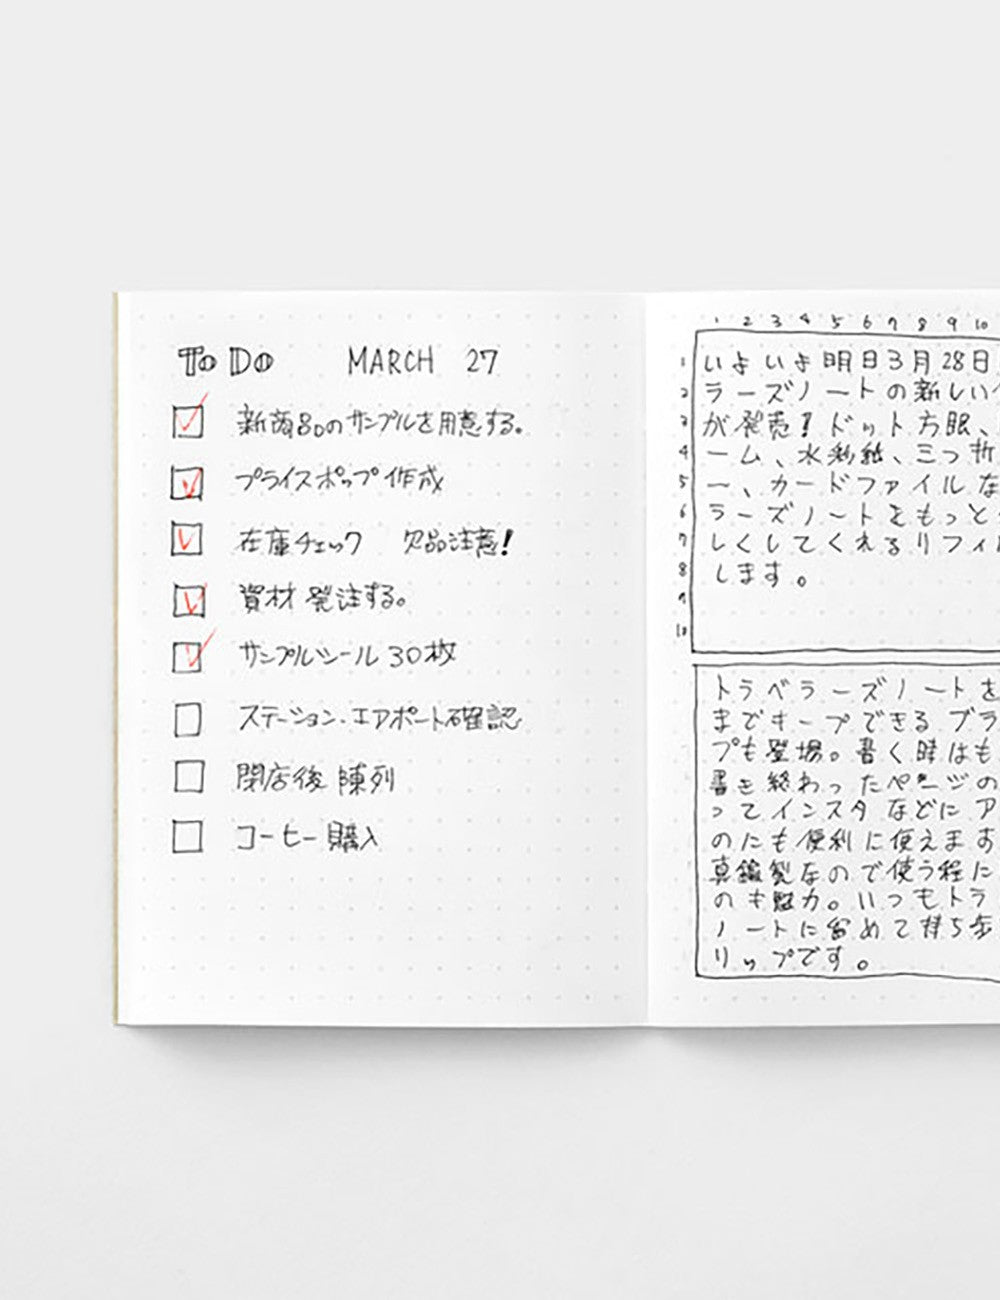 To Do MARCH 27
新商品のサンプルを用意する。
プライスポップ作成
在庫チェック 欠品注意!
資材発注する。
サンプルシール 30枚
ステーション・エアポート確認
閉店後 陳列
コーヒー購入
1 2 3 4 5 6 7 8 9 10
1 いよいよ明日3月28日
2 ラーズノートの新しい
3 が発売!ドット方眼、
4 ーム、水彩紙、三つ折
5 ー、カードファイルな
6 ラーズノートをもっと
7 しくしてくれるリフィル
8 します。
9
10
トラベラーズノートを
までキープできるブラ
プも登場。書く時はも
書き終わったページの
ってインスタなどにア
のにも便利に使えます
真鍮製なので使う程に
のも魅力。いつもトラ
ノートに留めて持ち歩
リップです。